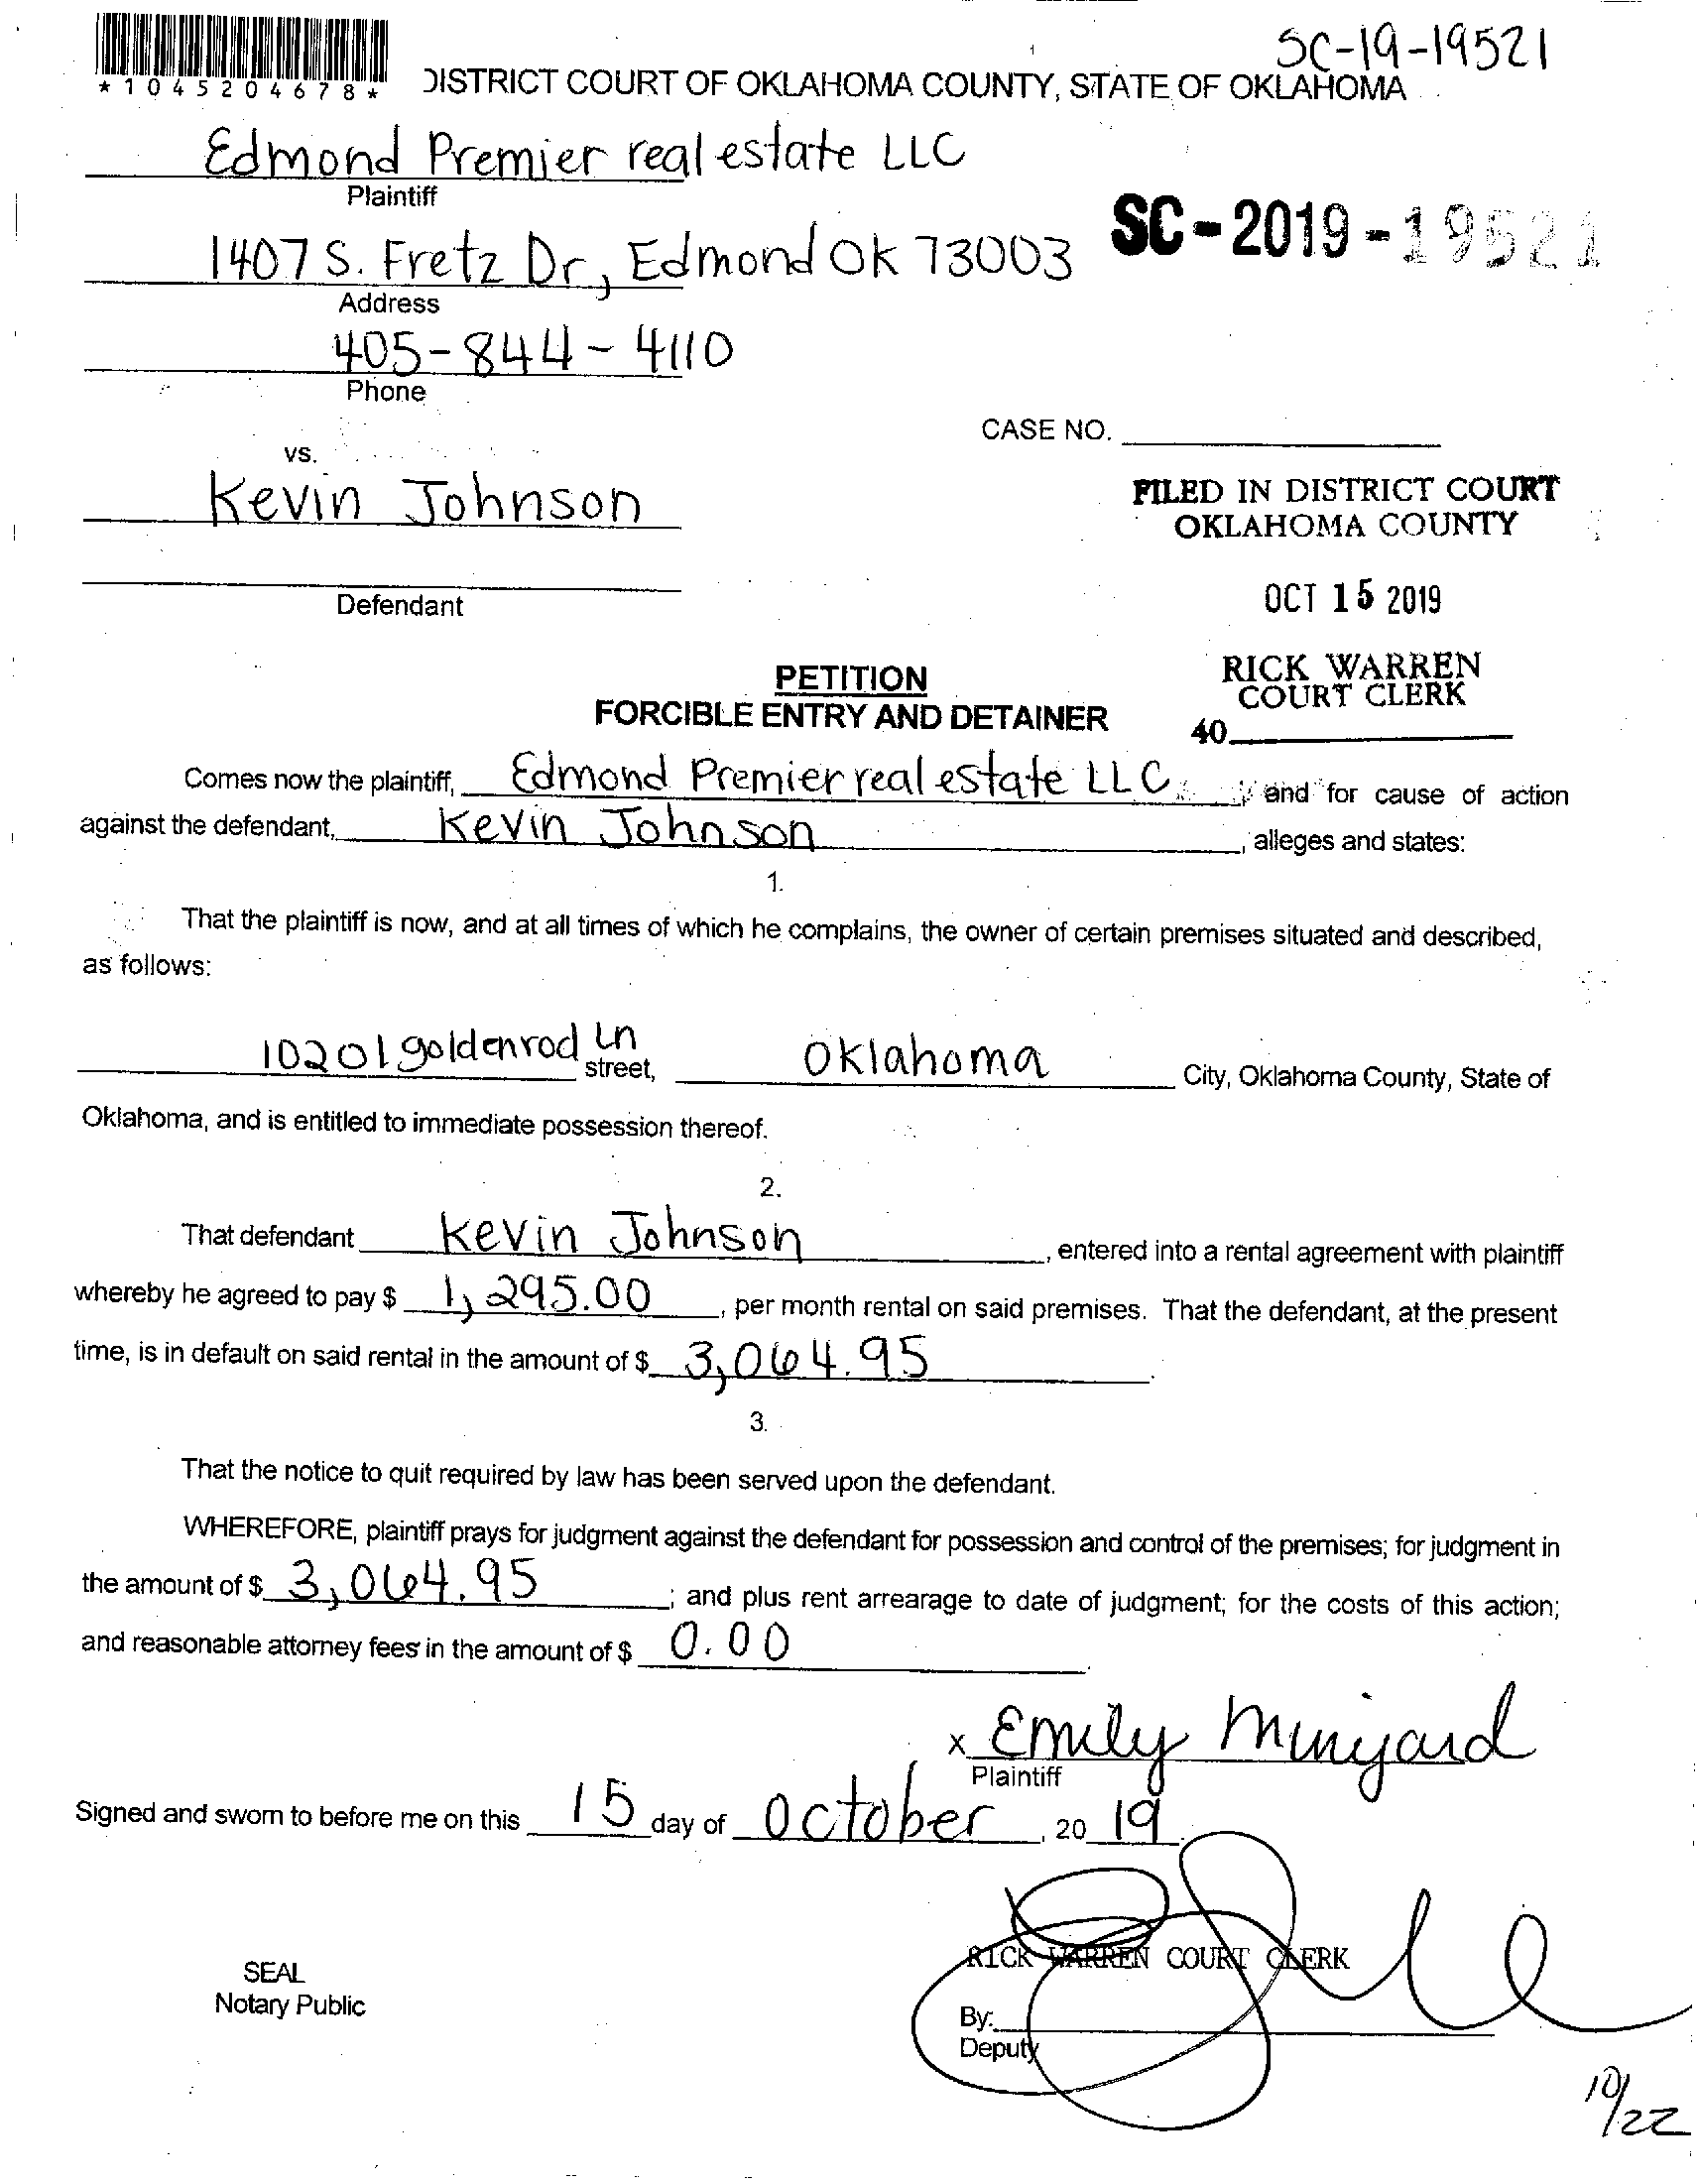 SC-19-19521
*1045204678*
DISTRICT COURT OF OKLAHOMA COUNTY, STATE OF OKLAHOMA
Edmond Premier real estate LLC
Plaintiff
SC-2019-19521
1407 S. Fretz Dr, Edmond Ok 73003
Address
405-844-4110
Phone
CASE NO.
vs.
Kevin Johnson
FILED IN DISTRICT COURT
OKLAHOMA COUNTY
Defendant
OCT 15 2019
RICK WARREN
COURT CLERK
40
PETITION
FORCIBLE ENTRY AND DETAINER
Comes now the plaintiff, Edmond Premier real estate LLC and for cause of action
against the defendant, Kevin Johnson, alleges and states:
1.
That the plaintiff is now, and at all times of which he complains, the owner of certain premises situated and described,
as follows:
10201 goldenrod Ln street, Oklahoma City, Oklahoma County, State of
Oklahoma, and is entitled to immediate possession thereof.
2.
That defendant Kevin Johnson, entered into a rental agreement with plaintiff
whereby he agreed to pay $ 1,295.00, per month rental on said premises. That the defendant, at the present
time, is in default on said rental in the amount of $ 3,064.95.
3.
That the notice to quit required by law has been served upon the defendant.
WHEREFORE, plaintiff prays for judgment against the defendant for possession and control of the premises; for judgment in
the amount of $ 3,064.95; and plus rent arrearage to date of judgment; for the costs of this action;
and reasonable attorney fees in the amount of $ 0.00.
x Emily Minyard
Plaintiff
Signed and sworn to before me on this 15 day of October, 20 19.
RICK WARREN COURT CLERK
SEAL
Notary Public
By:
Deputy
10/22